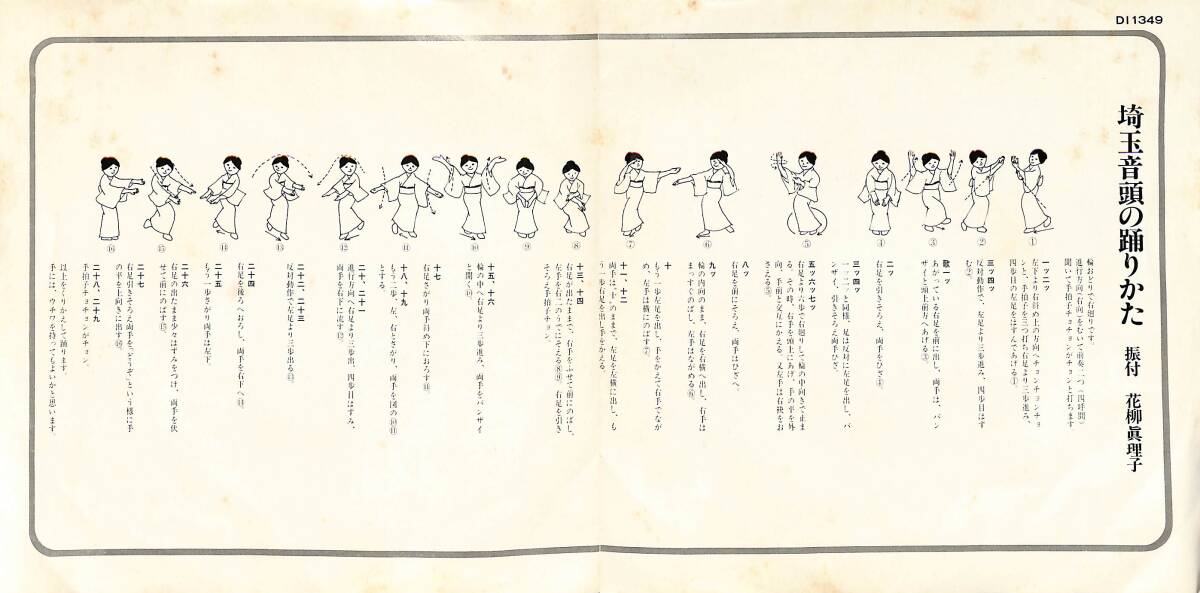 DI1349
埼玉音頭の踊りかた
振付 花柳眞理子
輪おどりで右廻りです。
進行方向(右向)をむいて前奏二つ(四呼間)
聞いて手拍子チョチョンがチョンと打ちます
一ッ二ッ
左下より右斜め上の方向へチョンチョンチョ
ンと、手拍子を三つ打ち右足より三歩進み、
四歩目の左足をはずんであげる①
三ッ四ッ
反対動作で、左足より三歩進み、四歩目はず
む②
歌一ッ
あがっている右足を前に出し、両手は、バン
ザイと頭上前方へあげる③
二ッ
右足を引きそろえ、両手をひざ④
三ッ四ッ
一ッ二ッと同様、足は反対に左足を出し、バ
ンザイ、引きそろえ両手ひざ。
五ッ六ッ七ッ
右足より六歩で右廻りして輪の中向きで止ま
る。その時、右手を頭上にあげ、手の平を外
向、手前と交互にかえる。又左手は右袂をお
さえる⑤
八ッ
右足を前にそろえ、両手はひざへ。
九ッ
輪の内向のまま、右足を右横へ出し、右手は
まっすぐのばし、左手はながめる⑥
十
もう一歩左足を出し、手をかえて右手でなが
め、左手は横にのばす⑦
十一、十二
両手は「十」のままで、左足を左横に出し、も
う一歩右足を出し手をかえる。
十三、十四
右足が出たままで、右手をふせて前にのばし、
左手を右二のうでにそえる⑧⑨、右足を引き
そろえ手拍子チョン。
十五、十六
輪の中へ右足より三歩進み、両手をバンザイ
と開く⑩
十七
右足さがり両手斜め下におろす⑪
十八、十九
もう二歩、左、右とさがり、両手を図の⑩⑪
とする。
二十、二十一
進行方向へ右足より三歩出、四歩目はずみ、
両手を右下に流す⑫
二十二、二十三
反対動作で左足より三歩出る⑬
二十四
右足を後ろへおろし、両手を右下へ⑭
二十五
もう一歩さがり両手は左下。
二十六
右足の出たまま少々はずみをつけ、両手を伏
せて前にのばす⑮
二十七
右足引きそろえ両手を「どうぞ」という様に手
の平を上向きに出す⑯
二十八、二十九
手拍子チョチョンがチョン。
以上をくりかえして踊ります。
手には、ウチワを持ってもよいかと思います。
① ② ③ ④ ⑤ ⑥ ⑦ ⑧ ⑨ ⑩ ⑪ ⑫ ⑬ ⑭ ⑮ ⑯